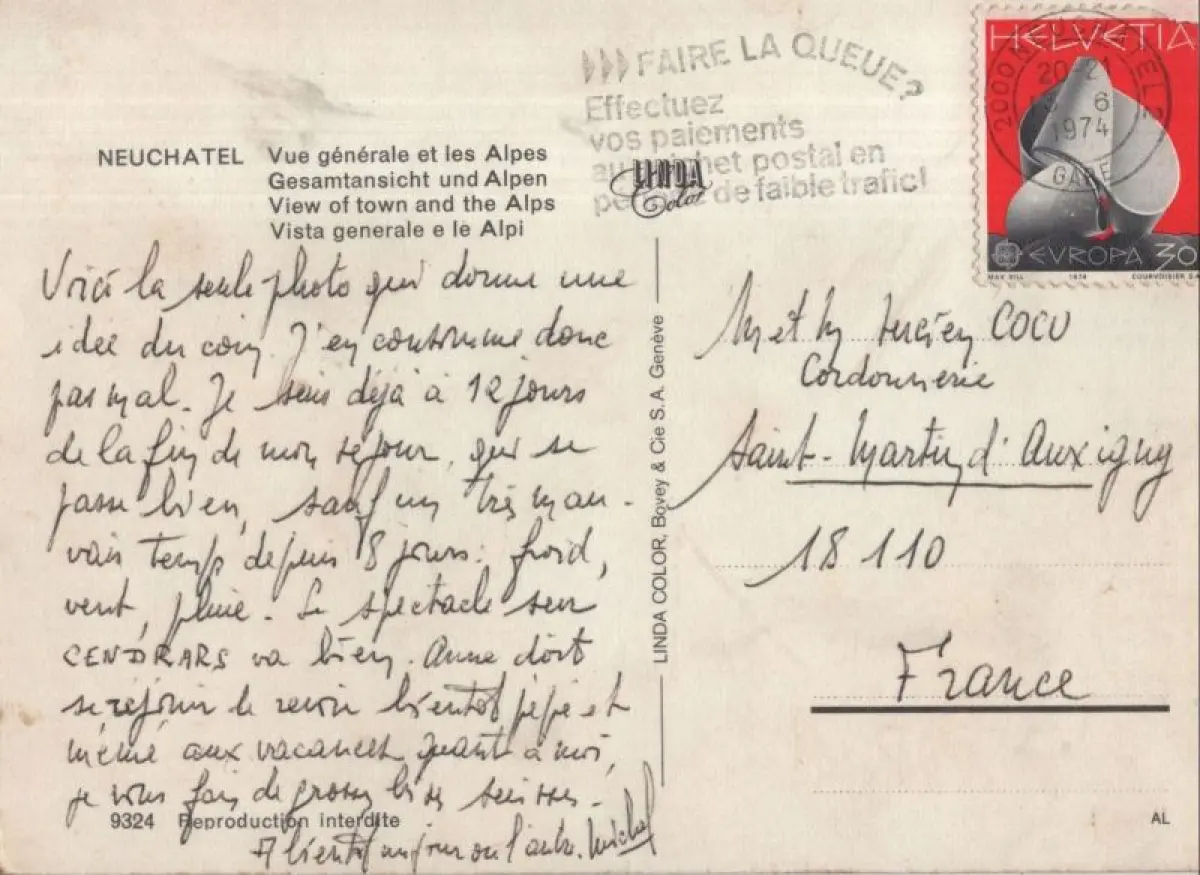 FAIRE LA QUEUE?
Effectuez
vos paiements
au guichet postal en
période de faible trafic!
HELVETIA
2000 NEUCHATEL 2
20-21
6
1974
GARE
EVROPA 30
MAX BILL 1974 COURVOISIER S.A.
NEUCHATEL Vue générale et les Alpes
Gesamtansicht und Alpen
View of town and the Alps
Vista generale e le Alpi
LINDA
Color
Voici la seule photo qui donne une
idée du coin. J'en consomme donc
pas mal. Je suis déjà à 12 jours
de la fin de mon séjour, qui se
passe bien, sauf un très mau-
vais temps depuis 8 jours : froid,
vent, pluie. Le spectacle sur
CENDRARS va bien. Anne doit
se réjouir de revoir bientôt pépé et
mémé aux vacances. Quant à moi,
je vous fais de grosses bises suisses.
A bientôt un jour ou l'autre. Michel
9324 Reproduction interdite
LINDA COLOR, Bovey & Cie S.A. Genève
M et Mme Lucien COCU
Cordonnerie
Saint-Martin d'Auxigny
18 110
France
AL